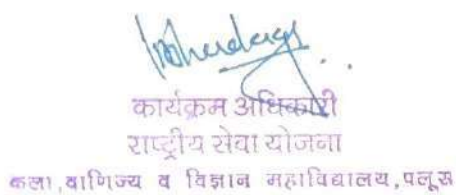 कार्यक्रम अधिकारी
राष्ट्रीय सेवा योजना
कला, वाणिज्य व विज्ञान महाविद्यालय, पलूस